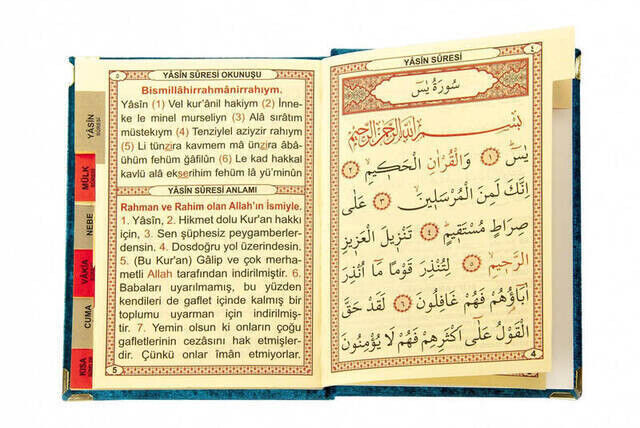 YÂSİN SÛRESİ OKUNUŞU
Bismillâhirrahmânirrahıym.
Yâsîn (1) Vel kur'ânil hakiym (2) İnne-
ke le minel murseliyn (3) Alâ sırâtım
müstekıym (4) Tenziylel aziyzir rahıym
(5) Li tünzira kavmem mâ ünzira âbâ-
ühüm fehüm ğâfilûn (6) Le kad hakkal
kavlü alâ ekserihim fehüm lâ yü'minûn
YÂSİN SÛRESİ ANLAMI
Rahman ve Rahim olan Allah'ın İsmiyle.
1. Yâsîn, 2. Hikmet dolu Kur'an hakkı
için, 3. Sen şüphesiz peygamberler-
densin. 4. Dosdoğru yol üzerindesin.
5. (Bu Kur'an) Gâlip ve çok merha-
metli Allah tarafından indirilmiştir. 6.
Babaları uyarılmamış, bu yüzden
kendileri de gaflet içinde kalmış bir
toplumu uyarman için indirilmiş-
tir. 7. Yemin olsun ki onların çoğu
gafletlerinin cezasını hak etmişler-
dir. Çünkü onlar îmân etmiyorlar.
5
YÂSİN
SÛRESİ
MÜLK
SÛRESİ
NEBE
VÂKIA
CUMA
KISA
YÂSİN SÛRESİ
٤
سُورَةُ يٰسٓ
بِسْمِ اللّٰهِ الرَّحْمٰنِ الرَّحِيمِ
يٰسٓ ﴿١﴾ وَالْقُرْاٰنِ الْحَكِيمِ ﴿٢﴾
اِنَّكَ لَمِنَ الْمُرْسَلِينَ ﴿٣﴾ عَلٰى
صِرَاطٍ مُسْتَقِيمٍ ﴿٤﴾ تَنْزِيلَ الْعَزِيزِ
الرَّحِيمِ ﴿٥﴾ لِتُنْذِرَ قَوْمًا مَٓا اُنْذِرَ
اٰبَٓاؤُ۬هُمْ فَهُمْ غَافِلُونَ ﴿٦﴾ لَقَدْ حَقَّ
الْقَوْلُ عَلٰٓى اَكْثَرِهِمْ فَهُمْ لَا يُؤْمِنُونَ
4